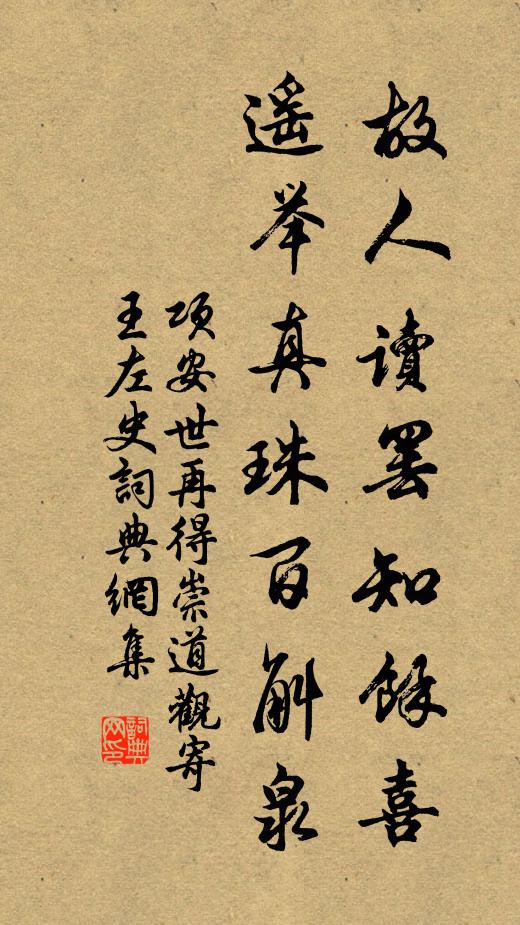 故人讀罢知餘喜
遥举真珠百斛泉
项安世再得崇道觀寄
王左史詞典網集
詞典網印